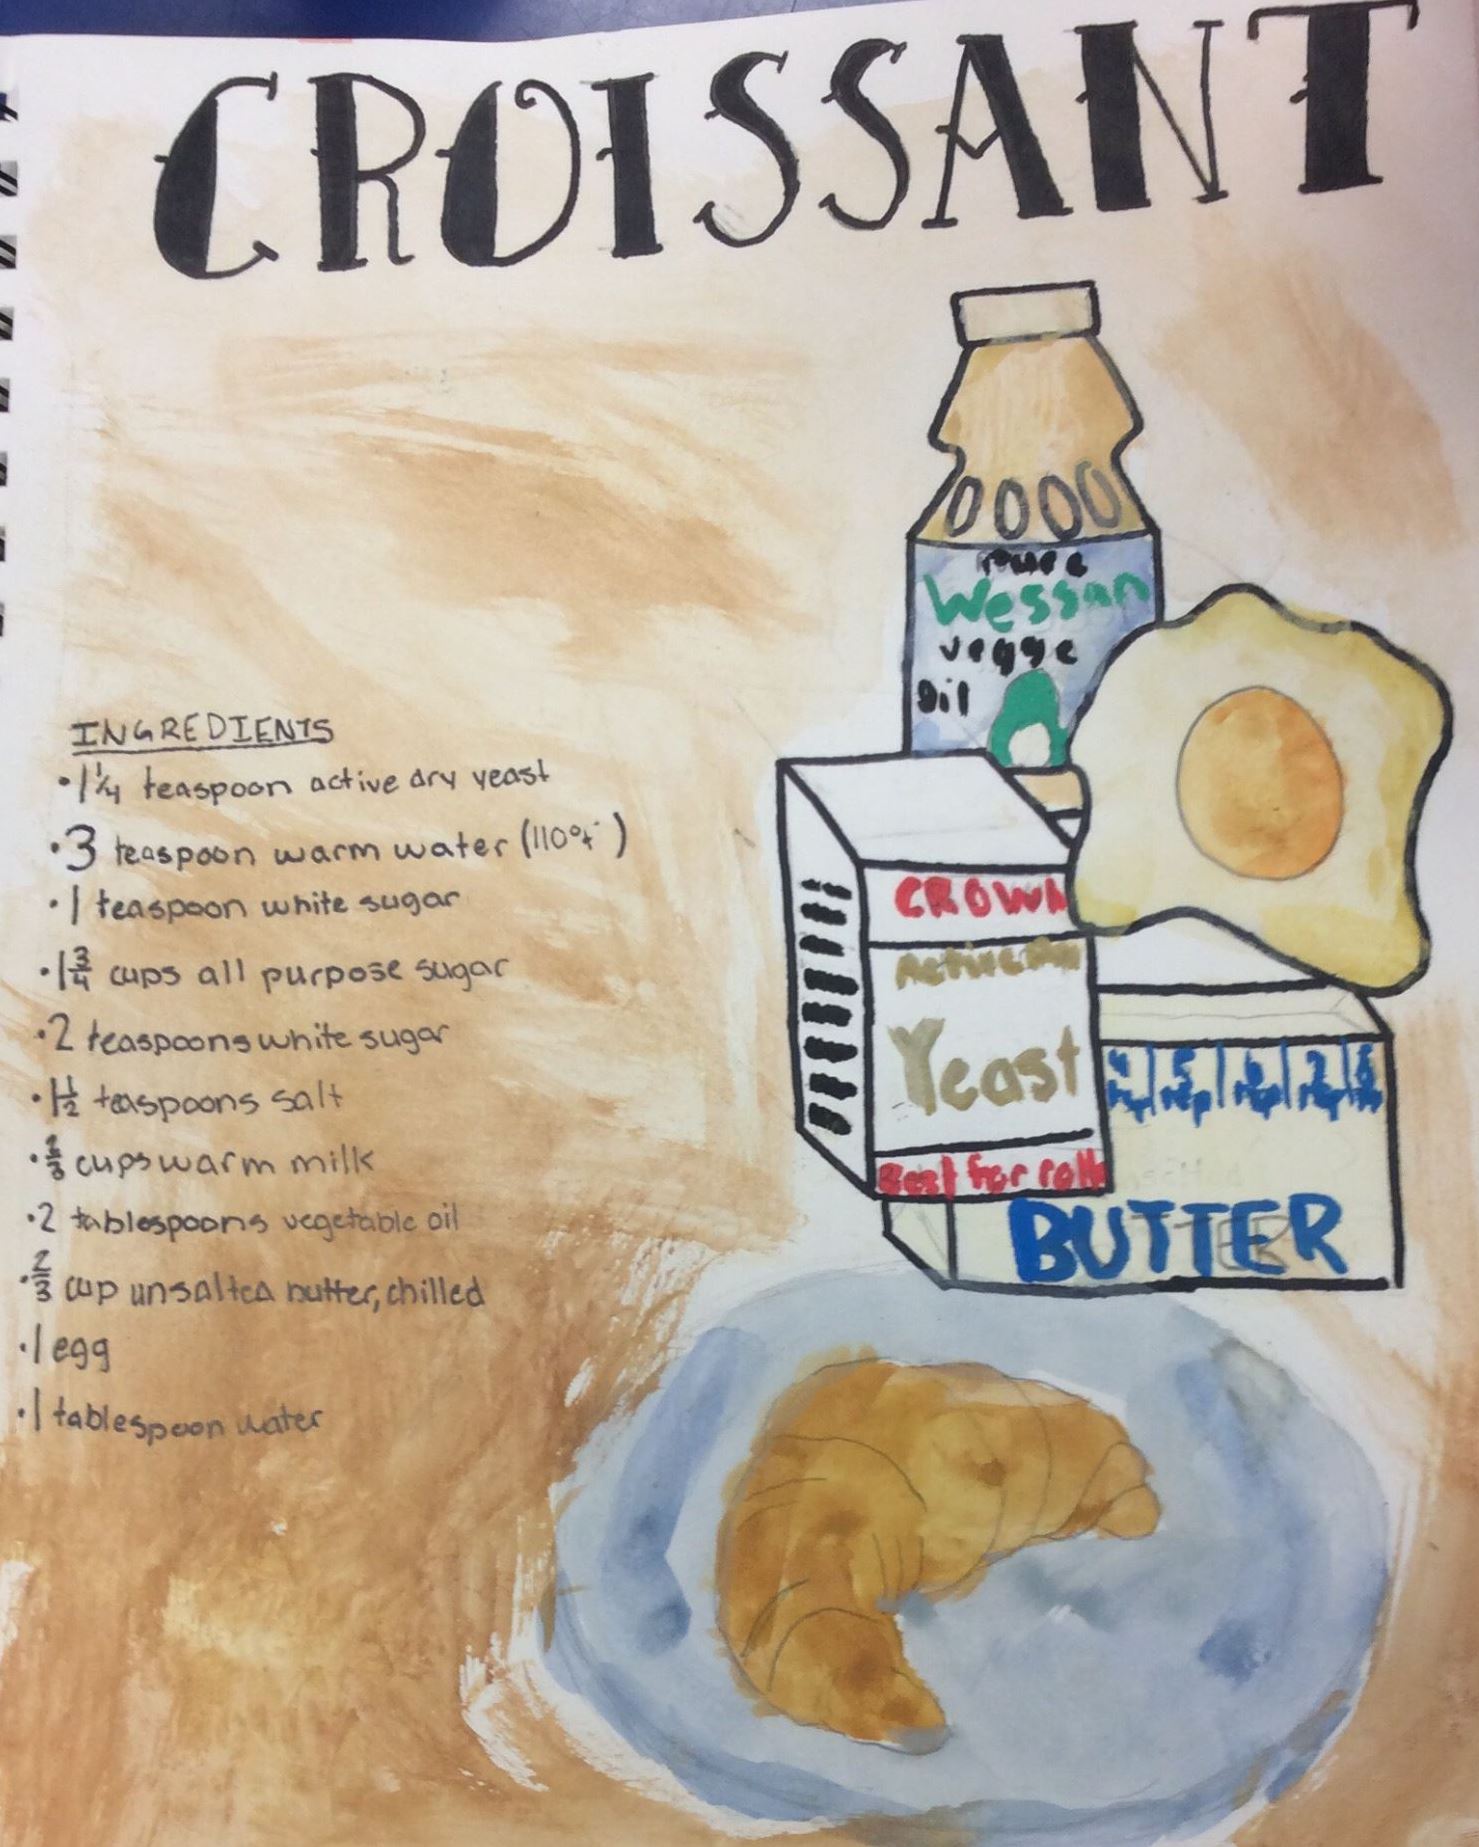 CROISSANT
Pure
Wessan
vegge
oil
INGREDIENTS
• 1 1/4 teaspoon active dry yeast
• 3 teaspoon warm water (110°f)
• 1 teaspoon white sugar
• 1 3/4 cups all purpose sugar
• 2 teaspoons white sugar
• 1 1/2 teaspoons salt
• 2/3 cups warm milk
• 2 tablespoons vegetable oil
• 2/3 cup unsalted butter, chilled
• 1 egg
• 1 tablespoon water
CROWN
Active Dry
Yeast
Best for rolls
4 5 6 7 8
BUTTER